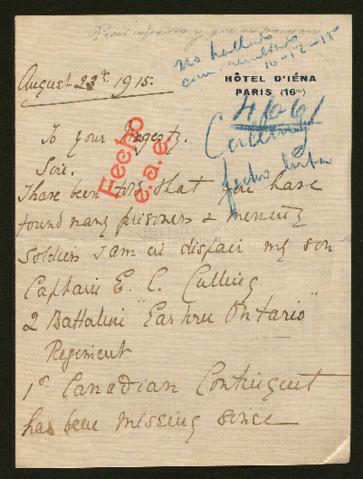 no hallado
comunicado
10-12-15
HÔTEL D'IÉNA
PARIS (16e)
August 23rd. 1915.
4061
Culling
Fecho
e.a.e.
To your Majesty.
Sire.
I have been told that you have
found many prisoners & missing
soldiers I am in dispair my son
Captain E. C. Culling
2 Battalion "Eastern Ontario"
Regiment
1st Canadian Contingent
has been missing since